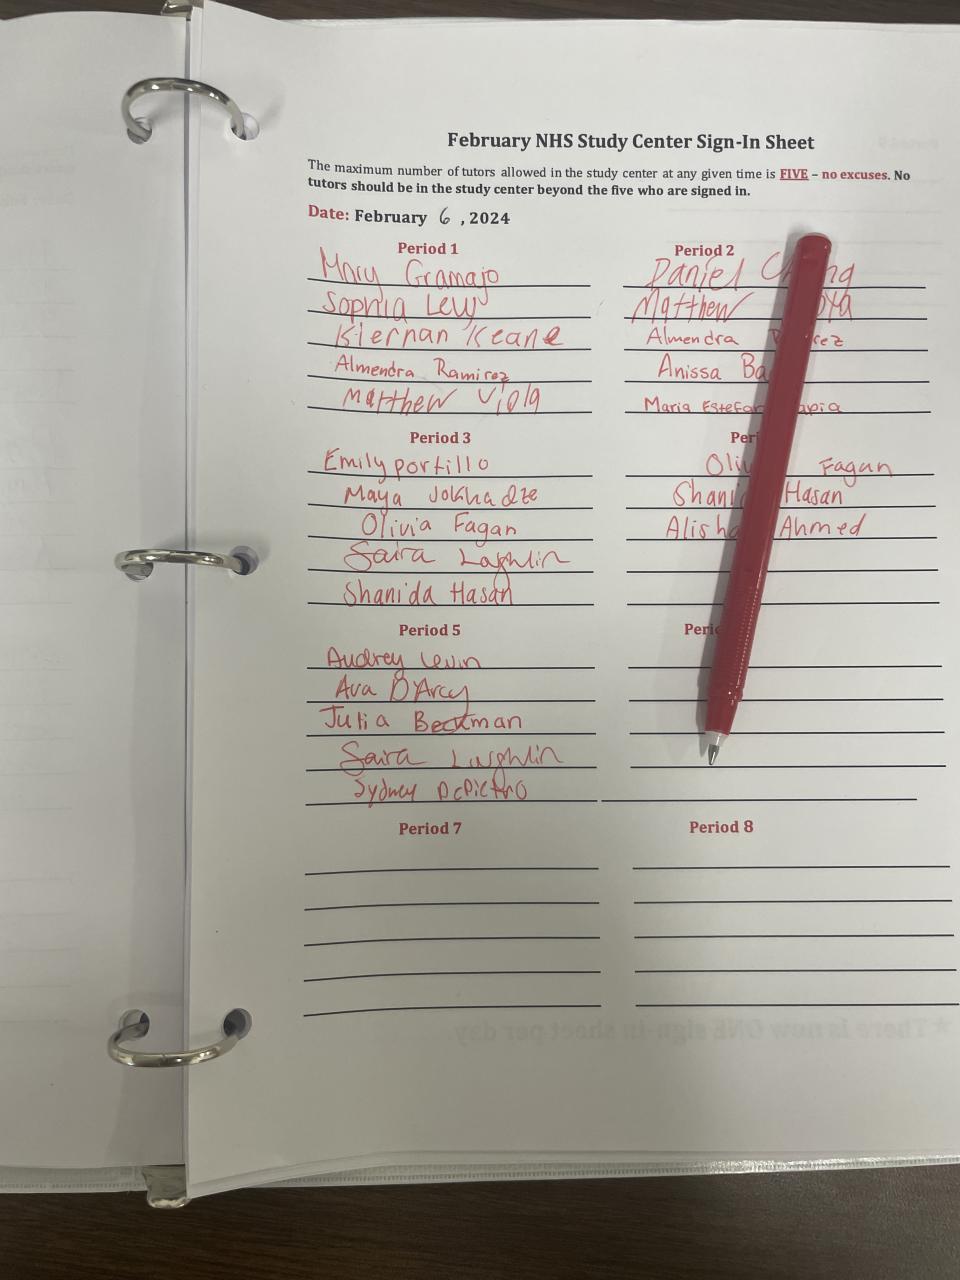 February NHS Study Center Sign-In Sheet
The maximum number of tutors allowed in the study center at any given time is FIVE – no excuses. No
tutors should be in the study center beyond the five who are signed in.
Date: February 6, 2024
Period 1
Mary Gramajo
Sophia Levy
Kiernan Keane
Almendra Ramirez
Matthew Viola
Period 2
Daniel
Matthew
Almendra
Anissa
Maria
Period 3
Emily portillo
Maya Jokhadze
Olivia Fagan
Saira Laghlin
Shanida Hasan
Fagan
Hasan
Ahmed
Period 5
Audrey Levin
Ava D'Arcy
Julia Beckman
Saira Laghlin
Sydney DePietro
Period 7
Period 8
★There is now ONE sign-in sheet per day